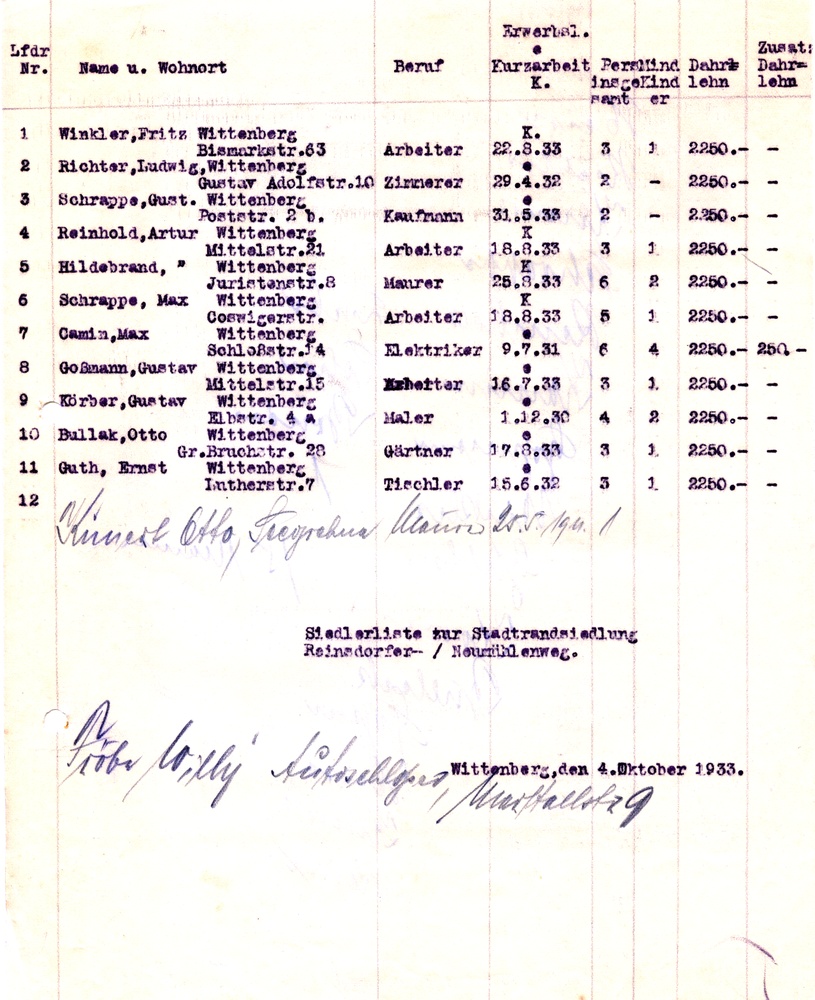 Erwerbsl.
Lfdr e Zusat:
Nr. Name u. Wohnort Beruf Kurzarbeit Pers Mind Dahr= Dahr=
K. insge Kind lehn lehn
samt er
1 Winkler,Fritz Wittenberg K.
Bismarkstr.63 Arbeiter 22.8.33 3 1 2250.- -
2 Richter,Ludwig,Wittenberg e
Gustav Adolfstr.10 Zimmerer 29.4.32 2 - 2250.- -
3 Schrappe,Gust. Wittenberg e
Poststr. 2 b. Kaufmann 31.5.33 2 - 2.250.- -
4 Reinhold,Artur Wittenberg K
Mittelstr.21 Arbeiter 18.8.33 3 1 2250.- -
5 Hildebrand, " Wittenberg K
Juristenstr.8 Maurer 25.8.33 6 2 2250.- -
6 Schrappe, Max Wittenberg K
Coswigerstr. Arbeiter 18.8.33 5 1 2250.- -
7 Camin,Max Wittenberg e
Schloßstr.14 Elektriker 9.7.31 6 4 2250.- 250.-
8 Goßmann,Gustav Wittenberg e
Mittelstr.15 Arbeiter 16.7.33 3 1 2250.- -
9 Körber,Gustav Wittenberg e
Elbstr. 4 a Maler 1.12.30 4 2 2250.- -
10 Bullak,Otto Wittenberg e
Gr.Bruchstr. 28 Gärtner 17.8.33 3 1 2250.- -
11 Guth, Ernst Wittenberg e
Lutherstr.7 Tischler 15.6.32 3 1 2250.- -
12
Kunert Otto, Seegrehna Maurer
Siedlerliste zur Stadtrandsiedlung
Reinsdorfer- / Neumühlenweg.
Wittenberg,den 4.Oktober 1933.
Fröbe Willy Autoschlosser, Marstallstr 9